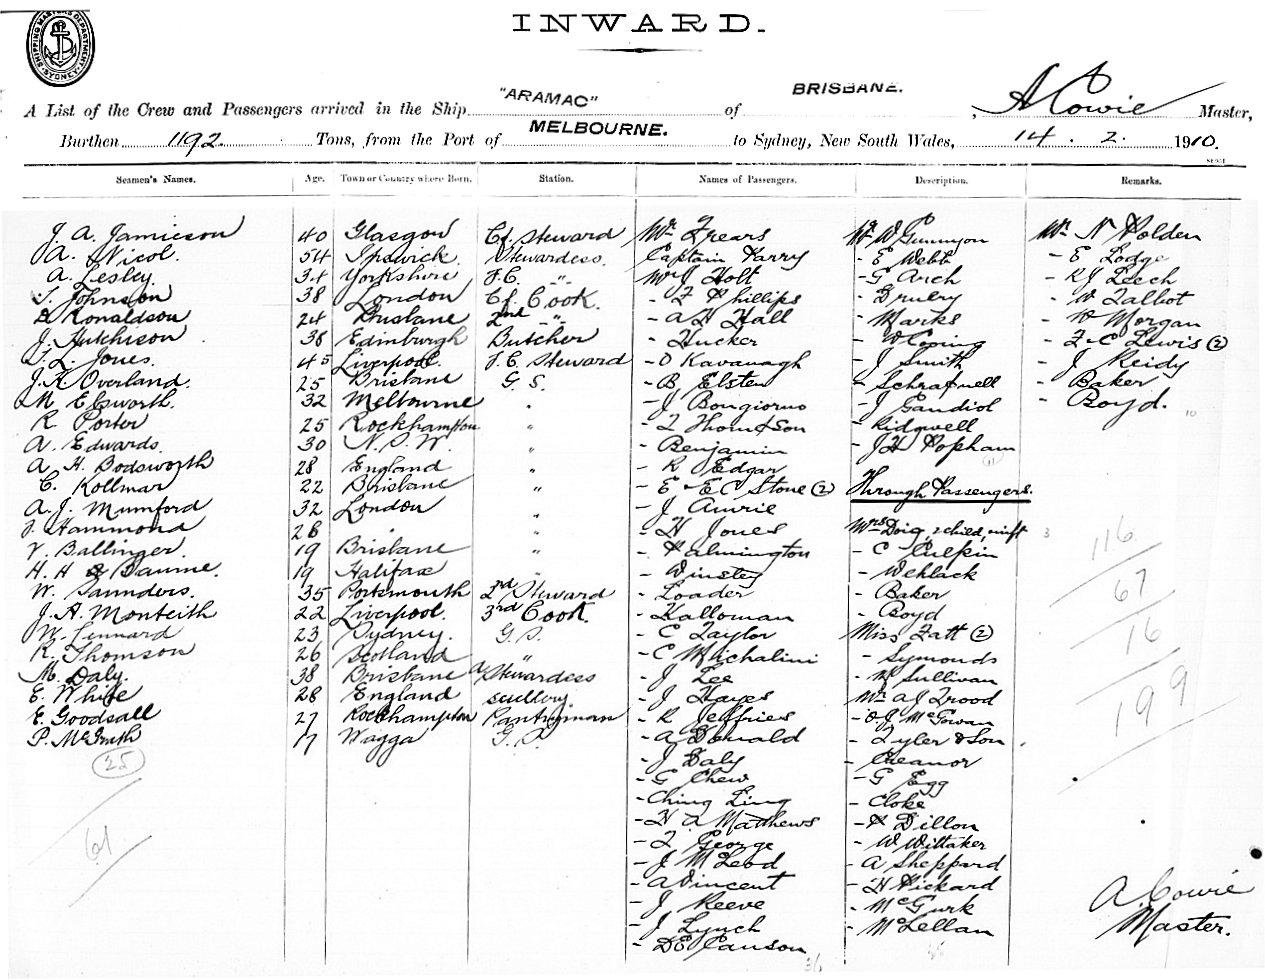 SHIPPING MASTERS DEPARTMENT SYDNEY
INWARD.
A List of the Crew and Passengers arrived in the Ship "ARAMAC" of BRISBANE. , A Cowie Master,
Burthen 1192 Tons, from the Port of MELBOURNE. to Sydney, New South Wales, 14 . 2. 1910.
Seamen's Names. Age. Town or Country where Born. Station. Names of Passengers. Description. Remarks.
J. A. Jamieson 40 Glasgow Cf. Steward
A. Nicol. 54 Ipswick Stewardess
A. Lesley. 34 Yorkshire F.C. "
Johnson 38 London Cf Cook.
Ronaldson 24 Brisbane 2nd "
J. Hutchison 38 Edinburgh Butcher
Jones. 45 Liverpool. F.C. Steward
J. Overland. 25 Brisbane G. S.
M Elsworth. 32 Melbourne "
R Porter 25 Rockhampton "
A. Edwards. 30 N.S.W. "
A H. Bodsworth 28 England "
C. Kollmar 22 Brisbane "
A. J. Mumford 32 London "
Hammond 28 " "
V. Ballinger. 19 Brisbane "
H. H Daume. 19 Halifax "
W. Saunders. 35 Portsmouth 2nd Steward
J. A. Monteith 22 Liverpool. 3rd Cook.
W. Lennard 23 Sydney. G.S.
R. Thomson 26 Scotland "
M. Daly. 38 Brisbane Stewardess
E. White 28 England scullery
E. Goodsall 27 Rockhampton Pantryman
P. McGrath 17 Wagga G.S.
25
61
Mr Frears
Captain Parry
Mr J Holt
- F Phillips
- A H Hall
- Hucker
- O Kavanagh
- B Elsten
- J Bongiorno
- Thom & Son
- Benjamin
- R Edgar
- E & E C Stone (2)
- J Awrie
- H Jones
- Palmington
- Winstey
- Loader
- Kalloman
- C Taylor
- C Michalini
- J Lee
- J Hayes
- R Jeffries
- A Donald
- J Daly
- G Chew
- Ching Ling
- H A Matthews
- George
- J McLeod
- A Vincent
- J Reeve
- J Lynch
- D E Causon
36
Mr W Gunnyon
- E Webb
- G Arch
- Gruery
- Marks
- W Eping
- J Smith
- Schrafnell
- J Gandiol
- Ridgwell
- J H Popham
11
Through Passengers.
Mrs Doig, 2 child, inft 3
- C Culpin
- Wehlack
- Baker
- Boyd
Miss Fatt (2)
- Symonds
- Sullivan
Mr A J Trood
- McGowan
- Tyler & Son
- Eleanor
- G Egg
- Cloke
- P Dillon
- W Wittaker
- A Sheppard
- H Pickard
- McGurk
- McLellan
Mr N Holden
- E Lodge
- R J Leech
- W Talbot
- W Morgan
- F C Lewis (2)
- J Reidy
- Baker
- Boyd.
10
116
67
16
199
A. Cowie
Master.